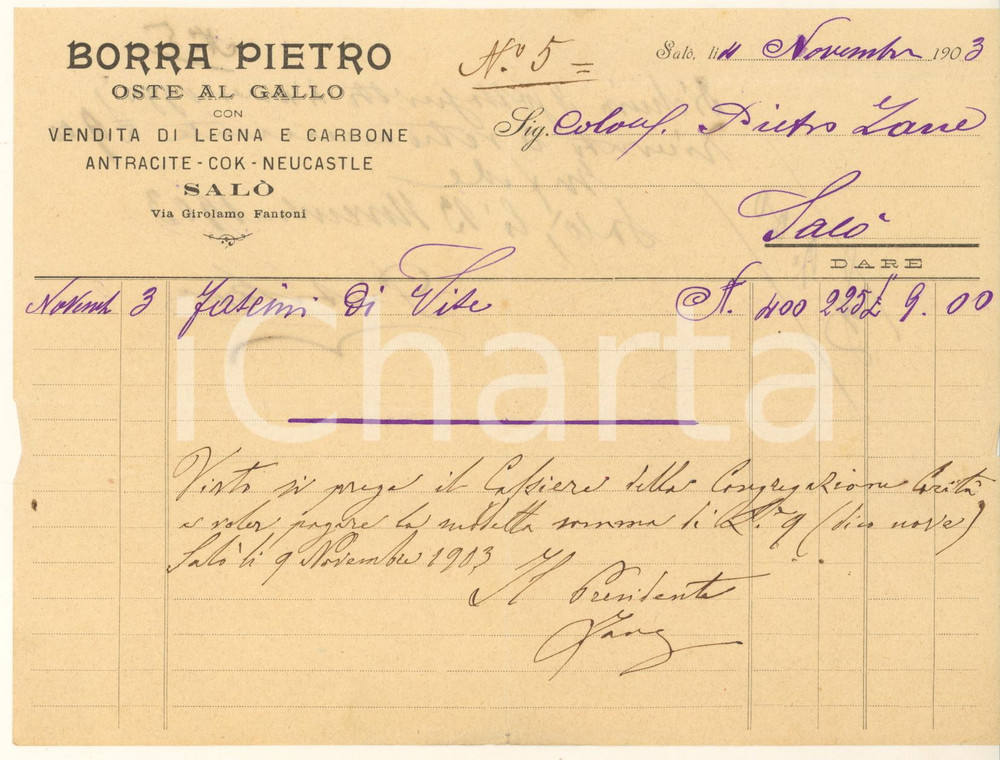 BORRA PIETRO
OSTE AL GALLO
CON
VENDITA DI LEGNA E CARBONE
ANTRACITE - COK - NEUCASTLE
SALÒ
Via Girolamo Fantoni
N.º 5
Salò, li 4 Novembr 1903
Sig. Colonl. Pietro Zane
Salò
DARE
Novemb 3 Fascini Di Vite N. 400 225 £ 9.00
iCharta
Visto si prega il Cassiere della Congregazione Carità
a voler pagare la sudetta somma di L. 9 (dico nove)
Salò li 9 Novembre 1903
Il Presidente
Zane